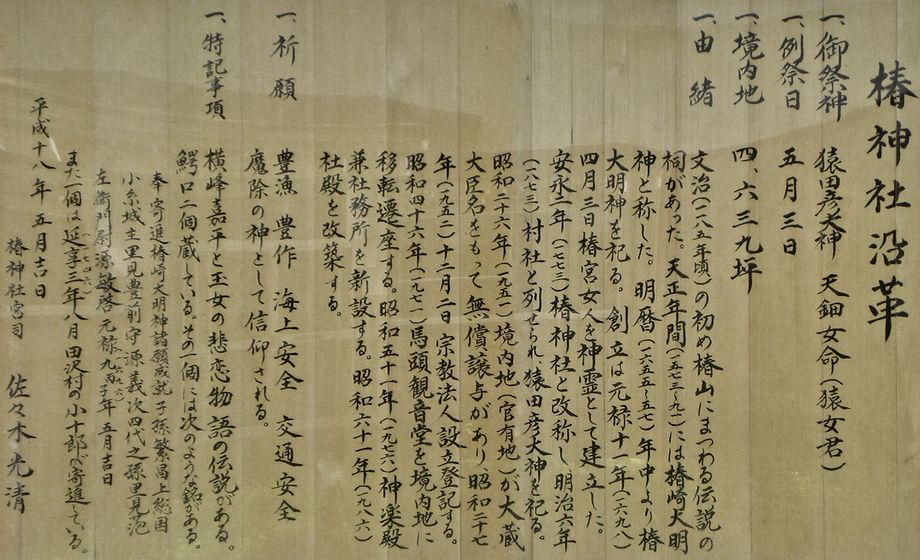 椿神社沿革
一、御祭神 猿田彦大神 天鈿女命(猿女君)
一、例祭日 五月三日
一、境内地 四、六三九坪
一、由緒
文治(一一八五年頃)の初め椿山にまつわる伝説の
祠があった。天正年間(一五七三〜九一)には椿崎大明
神と称した。明暦(一六五五〜五七)年中より椿
大明神を祀る。創立は元禄十一年(一六九八)
四月三日椿宮女人を神霊として建立した。
安永二年(一七七三)椿神社と改称し明治六年
(一八七三)村社と列せられ、猿田彦大神を祀る。
昭和二十六年(一九五一)境内地(官有地)が大蔵
大臣名をもって無償譲与があり昭和二十七
年(一九五二)十二月二日宗教法人設立登記する。
昭和四十六年(一九七一)馬頭観音堂を境内地に
移転遷座する。昭和五十一年(一九七六)神楽殿
兼社務所を新設する。昭和六十一年(一九八六)
社殿を改築する。
一、祈願
豊漁 豊作 海上安全 交通安全
魔除の神として信仰される。
一、特記事項
横峰嘉平と玉女の悲恋物語の伝説がある。
鰐口二個蔵している。その一個には次のような銘がある。
奉寄進椿崎大明神諸願成就子孫繁昌上総国
小糸城主里見豊前守源義次四代之孫里見
左衛門尉源敏啓元禄九丙子年五月吉日
(一六九六)
また一個は延享三年八月田沢村の小十郎が寄進している。
(一七四六)
平成十八年五月吉日
椿神社宮司 佐々木光清